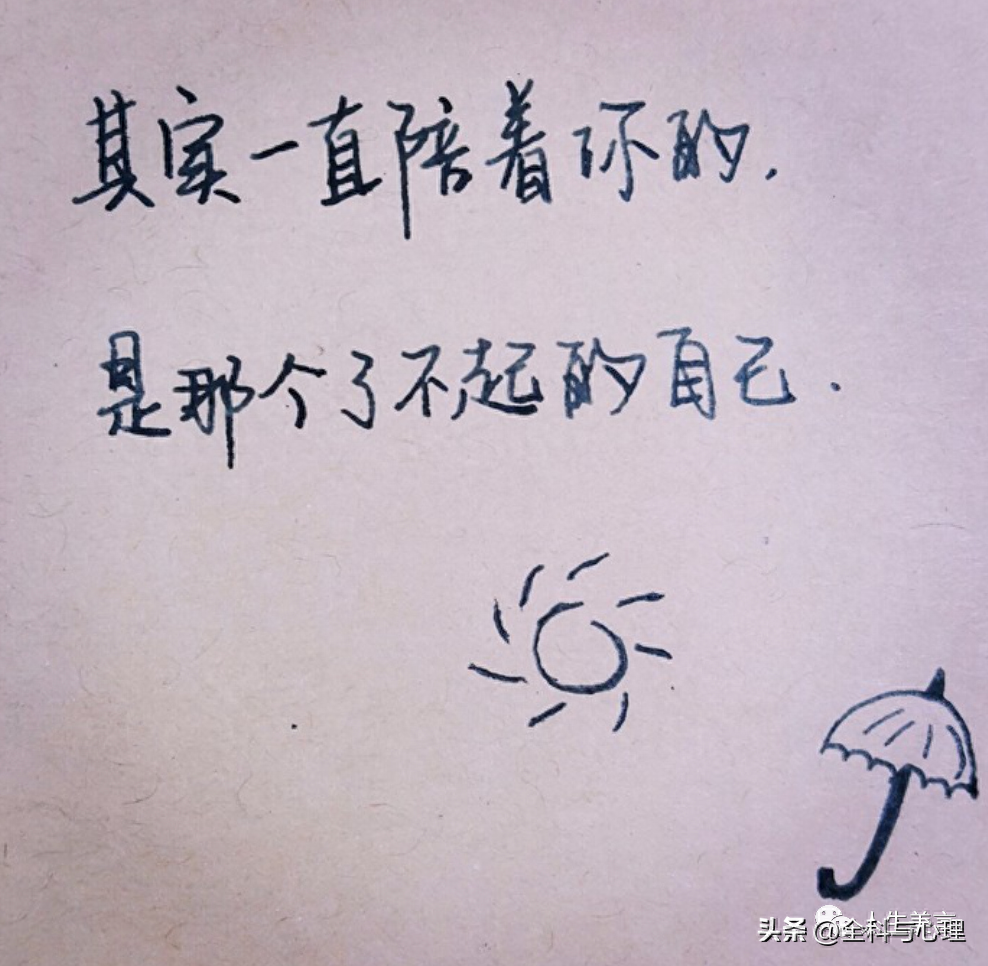 其实一直陪着你的.
是那个了不起的自己.
头条 @全科与心理